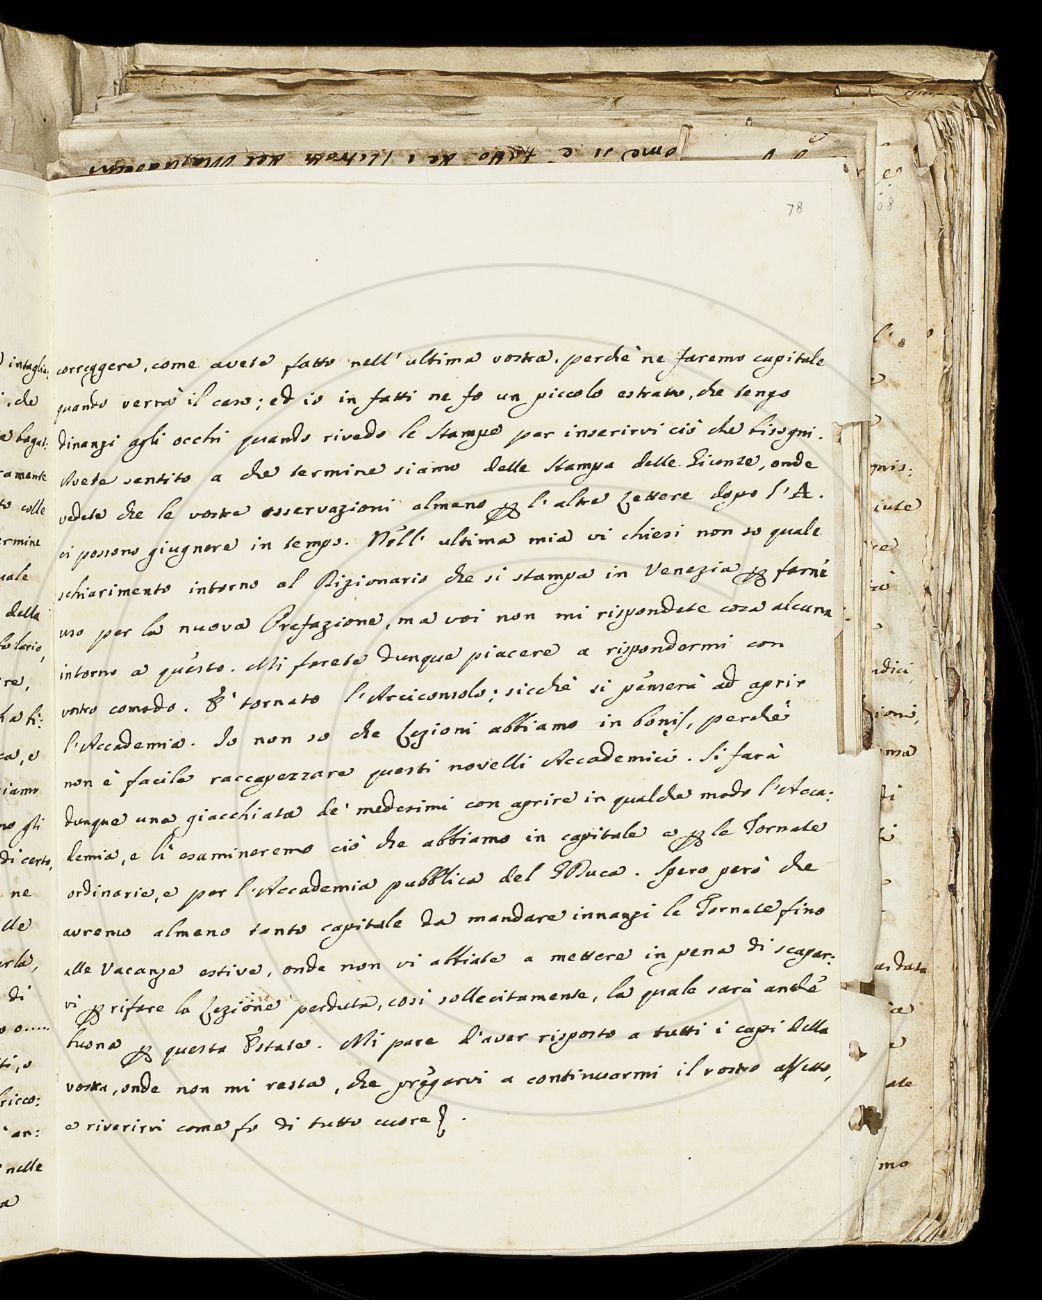 78
correggere, come avete fatto nell' ultima vostra, perchè ne faremo capitale
quando verrà il caso; ed io in fatti ne fo un piccolo estratto, che tengo
dinanzi agli occhi quando rivedo le stampe per inserirvi ciò che bisogni.
Avete sentito a che termine siamo delle stampa delle Giunte, onde
vedete che le vostre osservazioni almeno p l' altre Lettere dopo l' A.
ci possono giugnere in tempo. Nell' ultima mia vi chiesi non so quale
schiarimento intorno al Dizionario che si stampa in Venezia p farne
uso per la nuova Prefazione, ma voi non mi rispondete cosa alcuna
intorno a questo. Mi farete dunque piacere a rispondermi con
vostro comodo. E' tornato l' Arciconsolo; sicchè si penserà ad aprir
l' Accademia. Io non so che Lezioni abbiamo in bonis, perchè
non è facile raccapezzare questi novelli Accademici. Si farà
dunque una giacchiata de' medesimi con aprire in qualche modo l' Acca:
demia, e lì esamineremo ciò che abbiamo in capitale e p le Tornate
ordinarie, e per l' Accademia pubblica del GDuca. Spero però che
avremo almeno tanto capitale da mandare innanzi le Tornate fino
alle Vacanze estive, onde non vi abbiate a mettere in pena di scapar:
vi p rifare la Lezione perduta, così sollecitamente, la quale sarà anche
buona p questa Estate. Mi pare d' aver risposto a tutti i capi della
vostra, onde non mi resta, che pregarvi a continuarmi il vostro affetto,
e riverirvi come fo di tutto cuore.